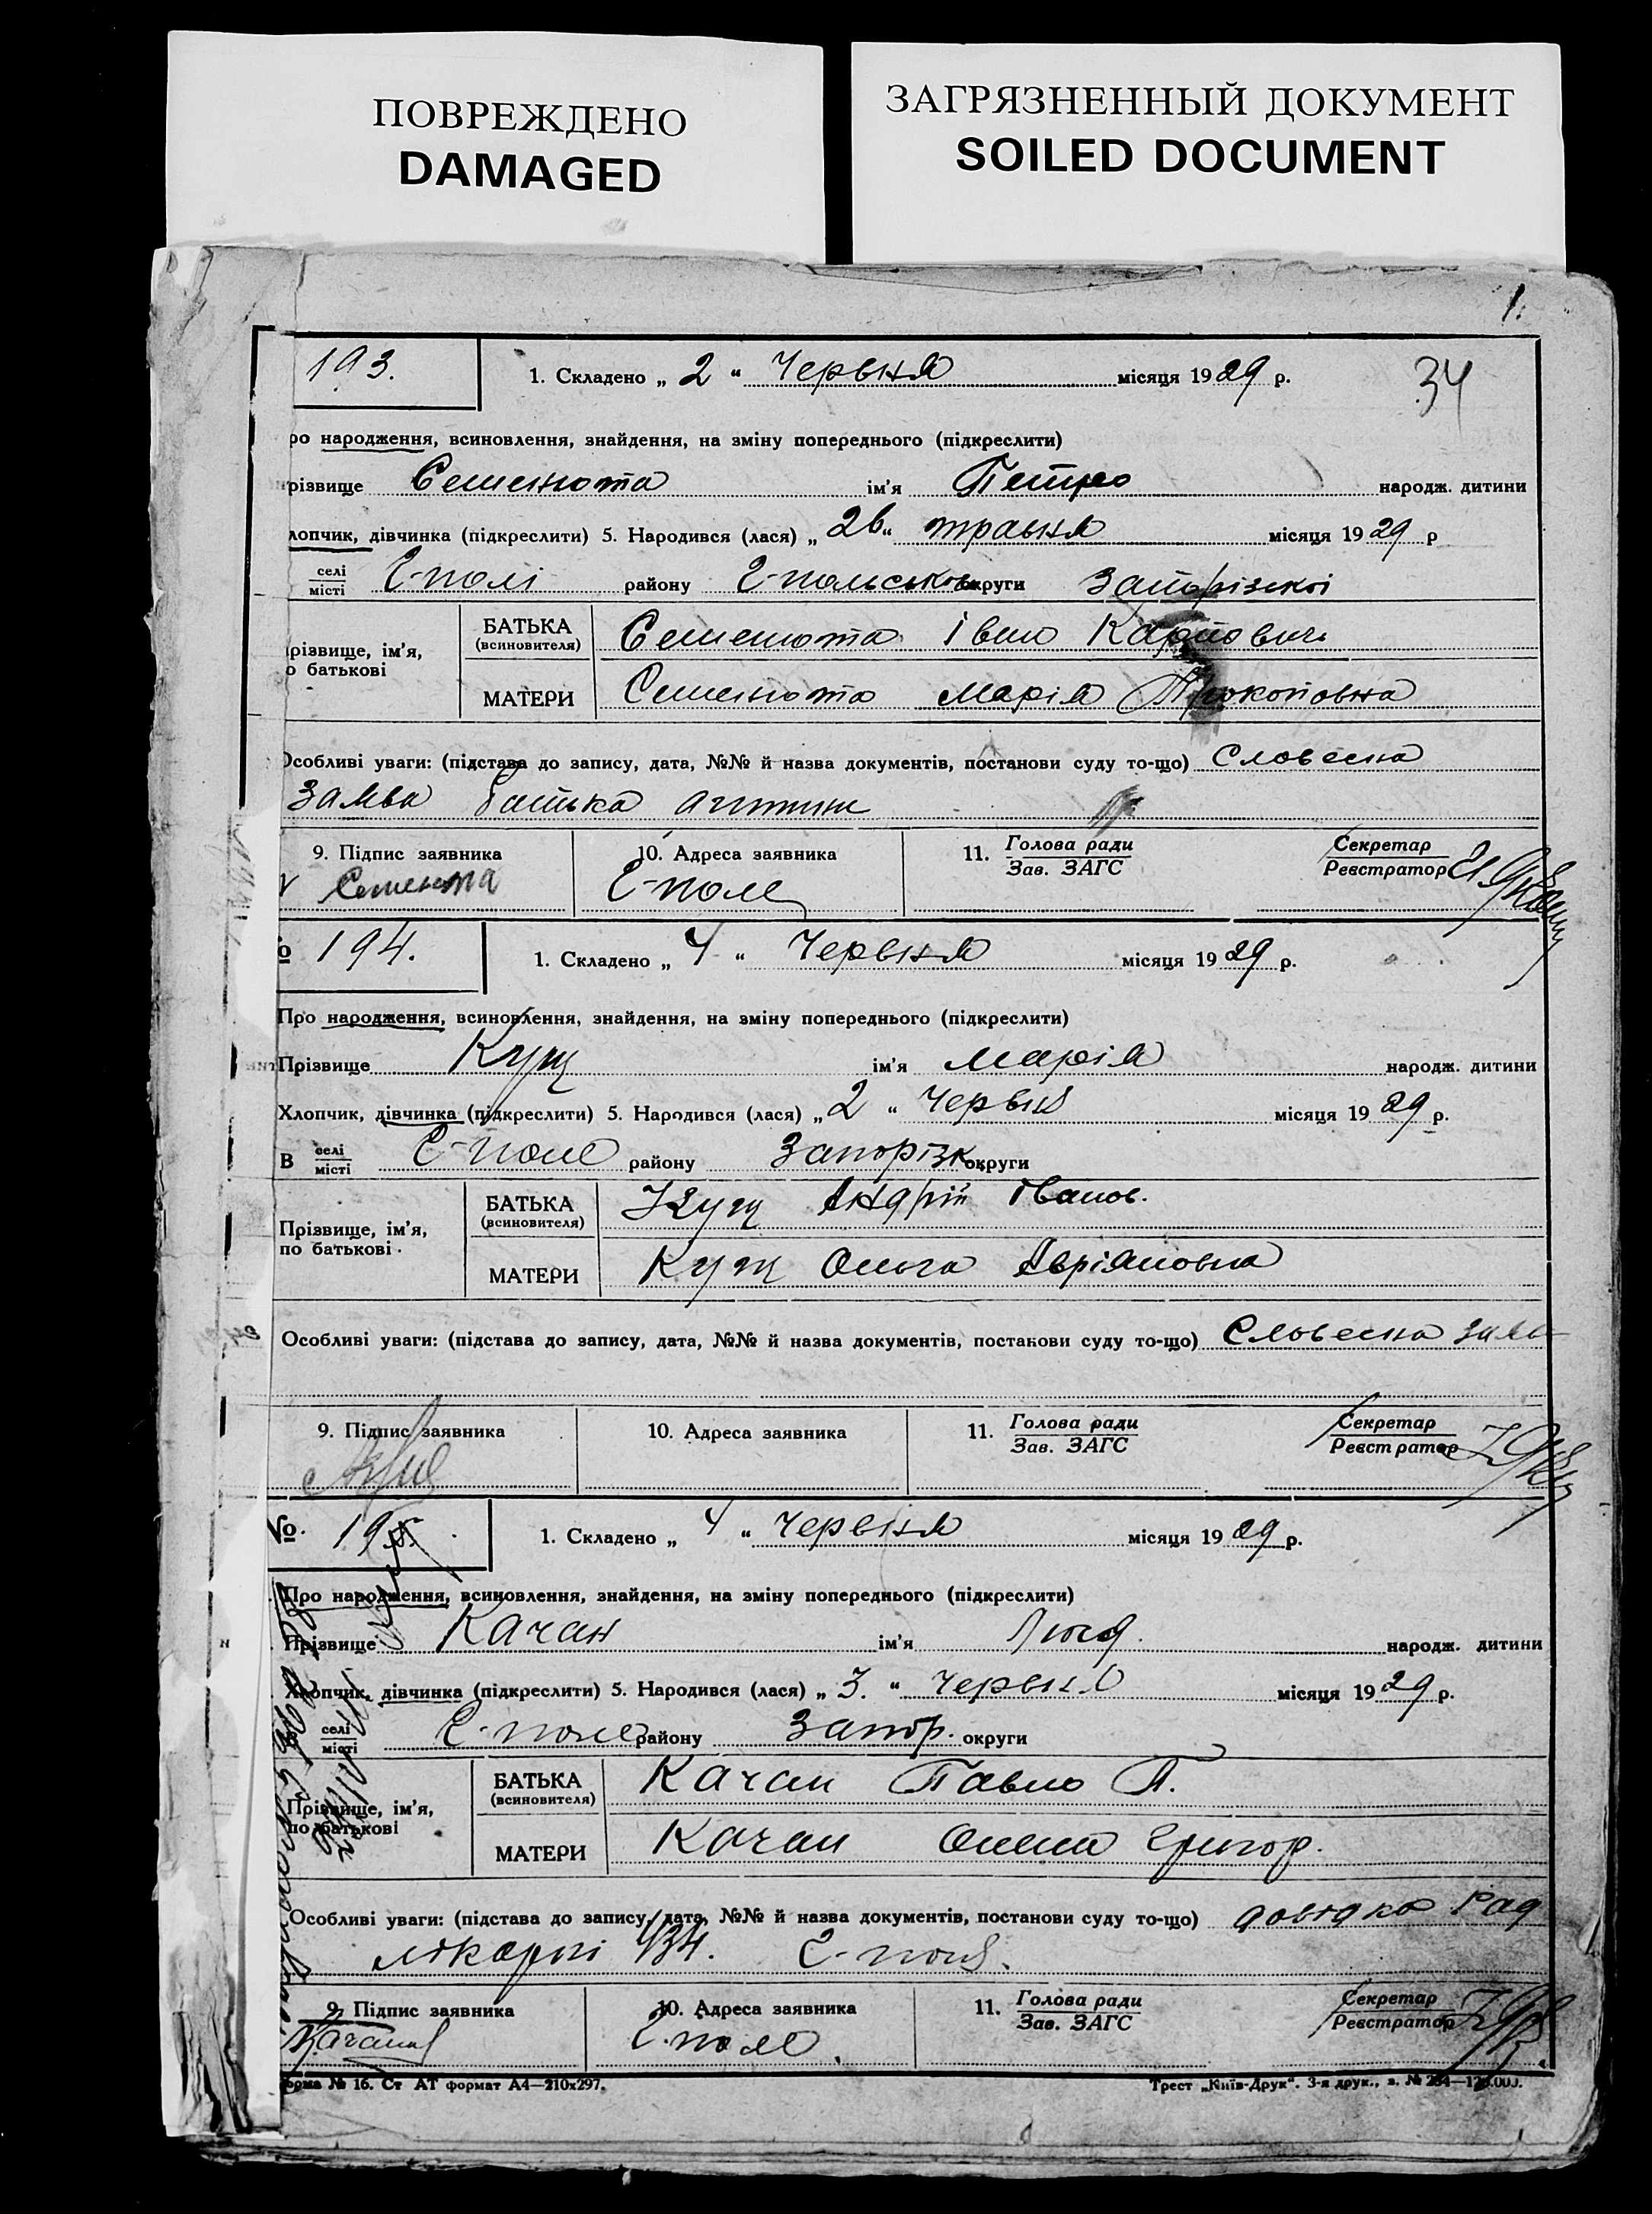 ПОВРЕЖДЕНО
DAMAGED
ЗАГРЯЗНЕННЫЙ ДОКУМЕНТ
SOILED DOCUMENT
1.
34
193. 1. Складено „ 2 “ Червня місяця 1929 р.
ро народження, всиновлення, знайдення, на зміну попереднього (підкреслити)
різвище Семенюта ім'я Петро народж. дитини
лопчик, дівчинка (підкреслити) 5. Народився (лася) „ 26 “ травня місяця 1929 р
селі
місті Г-полі району Г-польськ округи Запорізкоі
різвище, ім'я,
о батькові
БАТЬКА
(всиновителя) Семенюта Іван Карпович
МАТЕРИ Семенюта Марія Прокоповна
Особливі уваги: (підстава до запису, дата, №№ й назва документів, постанови суду то-що) Словесна
Заява батька
9. Підпис заявника 10. Адреса заявника 11. Голова ради
Зав. ЗАГС Секретар
Реєстратор
Семенюта Г-поле
№ 194. 1. Складено „ 4 “ Червня місяця 1929 р.
Про народження, всиновлення, знайдення, на зміну попереднього (підкреслити)
Прізвище Кущ ім'я Марія народж. дитини
Хлопчик, дівчинка (підкреслити) 5. Народився (лася) „ 2 “ Червня місяця 1929 р.
В селі
місті Г-поле району Запорізк округи
Прізвище, ім'я,
по батькові
БАТЬКА
(всиновителя) Кущ Андрій Іванов.
МАТЕРИ Кущ Ольга Авріяновна
Особливі уваги: (підстава до запису, дата, №№ й назва документів, постанови суду то-що) Словесна заяв
9. Підпис заявника 10. Адреса заявника 11. Голова ради
Зав. ЗАГС Секретар
Реєстратор
№. 195. 1. Складено „ 4 “ Червня місяця 1929 р.
Про народження, всиновлення, знайдення, на зміну попереднього (підкреслити)
Прізвище Качан ім'я Люд. народж. дитини
Хлопчик, дівчинка (підкреслити) 5. Народився (лася) „ 3. “ Червня місяця 1929 р.
селі
місті Г-поле району Запор. округи
Прізвище, ім'я,
по батькові
БАТЬКА
(всиновителя) Качан Павло П.
МАТЕРИ Качан Олена Григор.
Особливі уваги: (підстава до запису, дата, №№ й назва документів, постанови суду то-що) довідка Рад
лікарні 434. Г-поля.
9. Підпис заявника 10. Адреса заявника 11. Голова ради
Зав. ЗАГС Секретар
Реєстратор
Г-поле.
орма № 16. Ст АТ формат А4—210х297.
Трест „Київ-Друк“. 3-я друк., з. №